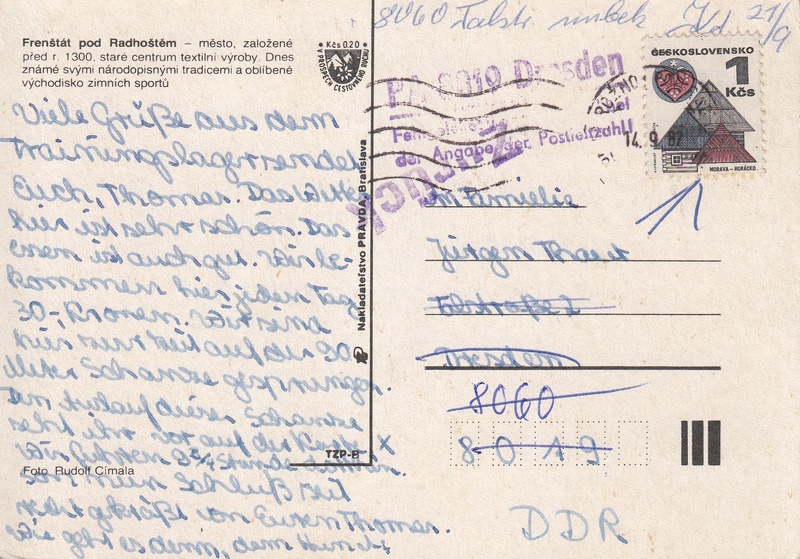 8060 Talstr. unbek
21/9
Frenštát pod Radhoštěm – město, založené
před r. 1300. staré centrum textilní výroby. Dnes
známé svými národopisnými tradicemi a oblíbené
východisko zimních sportů
Kčs 0,20
V PROSPĚCH CESTOVNÉHO RUCHU
PA 8019 Dresden
der Angabe der Postleitzahl!
Zurück
14.9.87
ČESKOSLOVENSKO
1
Kčs
MORAVA – HORÁCKO
Viele Grüße aus dem
Trainingslager sendet
Euch, Thomas. Das Wetter
hier ist sehr schön. Das
essen ist auch gut. Wir be-
kommen hier jeden Tag
30,- Kronen. Wir sind
hier zur Zeit auf der 30
Meter Schanze gesprungen.
Den Anlauf dieser Schanze
seht ihr vor auf der Karte X
Wir fuhren 3 3/4 Stunde
Zum Schluß seit
recht gegrüßt von Euren Thomas.
Wie geht es denn, dem Hund
Nakladateľstvo PRAVDA, Bratislava
TZP-P
Foto Rudolf Címala
An Familie
Jürgen
Talstraße 1
Dresden
8060
8019
DDR